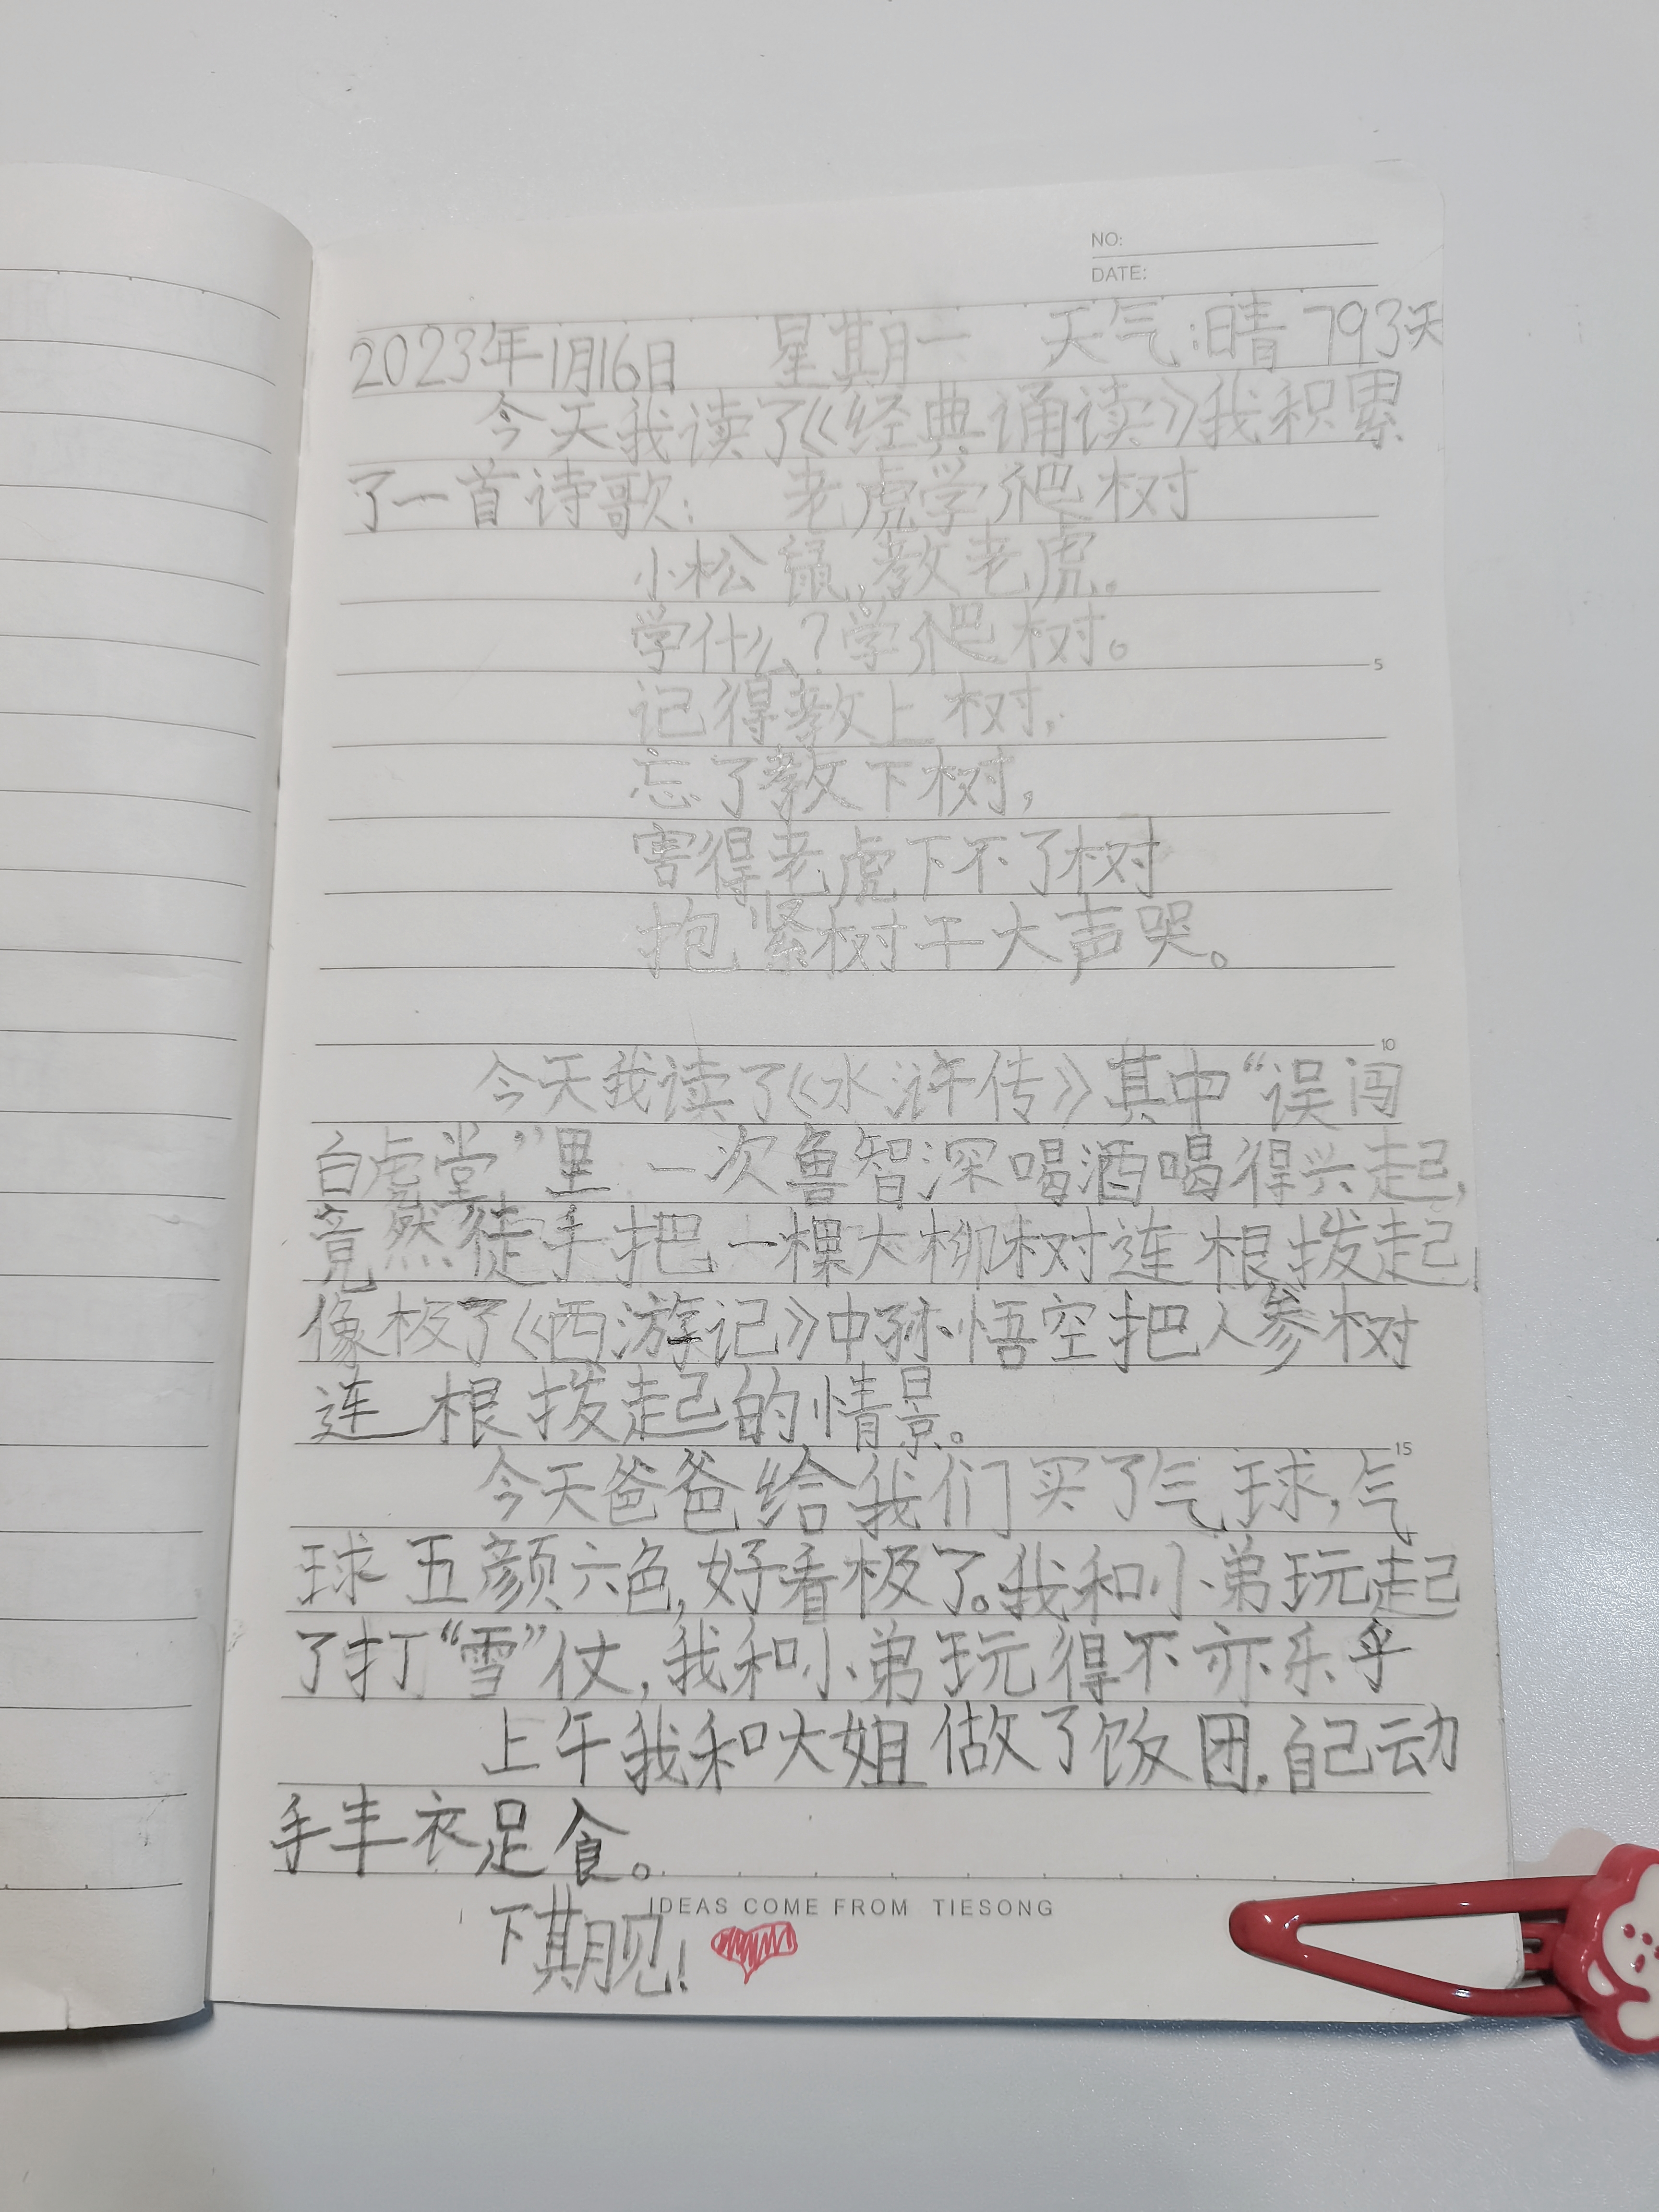 NO:
DATE:
2023年1月16日 星期一 天气:晴 793天
今天我读了《经典诵读》我积累
了一首诗歌: 老虎学爬树
小松鼠,教老虎。
学什么?学爬树。
记得教上树,
忘了教下树,
害得老虎下不了树
抱紧树干大声哭。
今天我读了《水浒传》其中“误闯
白虎堂”里 一次鲁智深喝酒喝得兴起,
竟然徒手把一棵大柳树连根拨起,
像极了《西游记》中孙悟空把人参树
连根拨起的情景。
今天爸爸给我们买了气球,气
球五颜六色,好看极了。我和小弟玩起
了打“雪”仗,我和小弟玩得不亦乐乎
上午我和大姐做了饭团,自己动
手丰衣足食。
IDEAS COME FROM TIESONG
下期见!
5
10
15